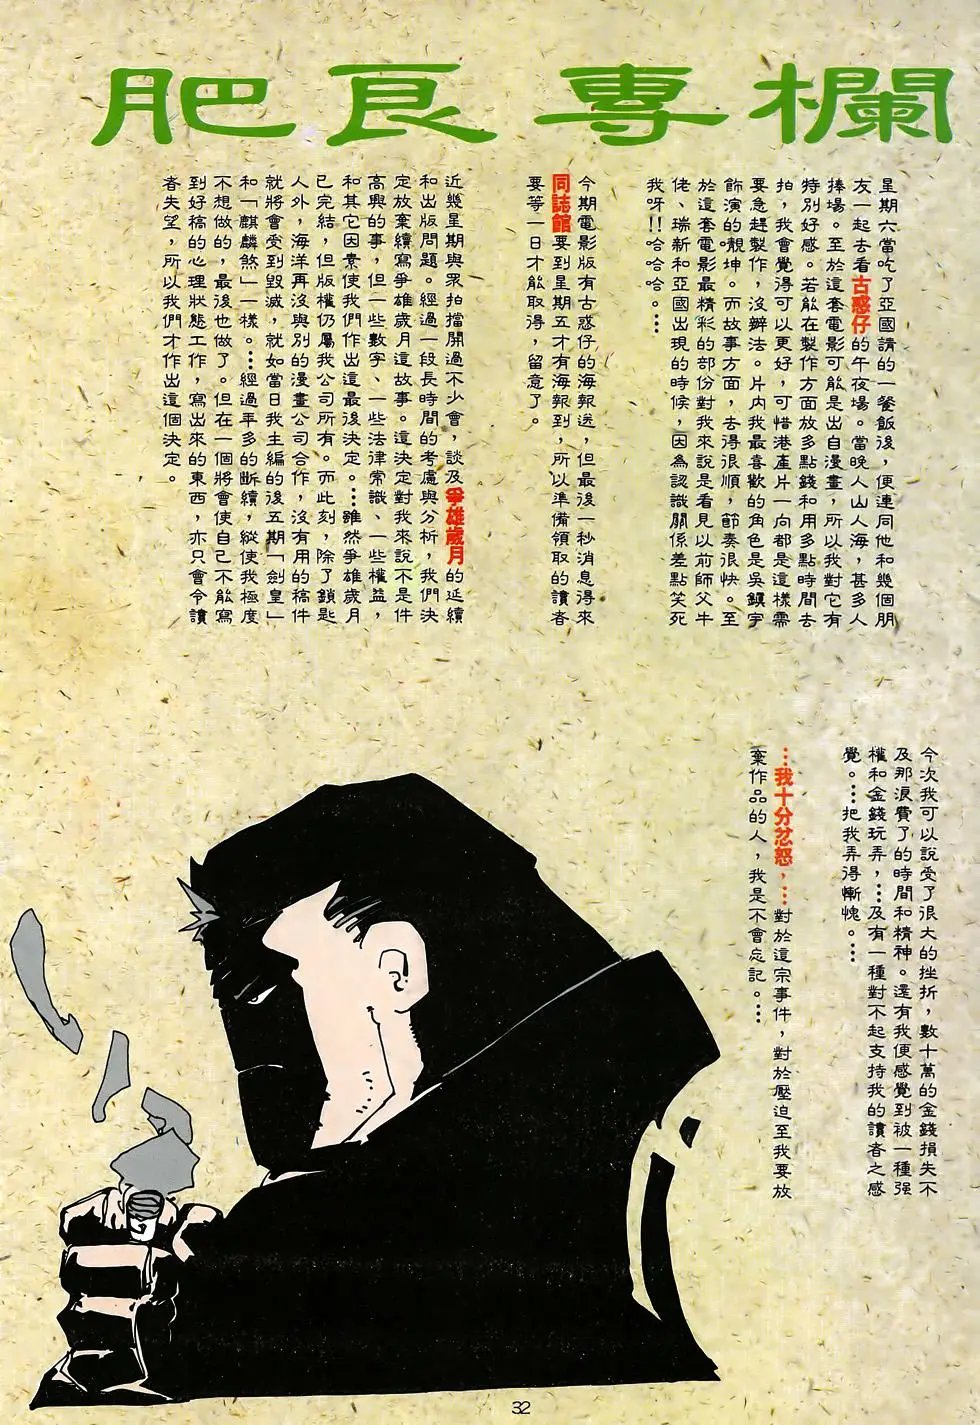 肥良專欄
星期六當吃了亞國請的一餐飯後，便連同他和幾個朋
友一起去看古惑仔的午夜場。當晚人山人海，甚多人
捧場。至於這套電影可能是出自漫畫，所以我對它有
特別好感。若能在製作方面放多點錢和用多點時間去
拍，我會覺得可以更好，可惜港產片一向都是這樣需
要急趕製作，沒辦法。片內我最喜歡的角色是吳鎮宇
飾演的靚坤。而故事方面，去得很順，節奏很快。至
於這套電影最精彩的部份對我來說是看見以前師父牛
佬、瑞新和亞國出現的時候，因為認識關係差點笑死
我呀!!哈哈哈。…
今期電影版有古惑仔的海報送，但最後一秒消息得來
同誌館要到星期五才有海報到，所以準備領取的讀者
要等一日才能取得，留意了。
近幾星期與眾拍擋開過不少會，談及爭雄歲月的延續
和出版問題。經過一段長時間的考慮與分析，我們決
定放棄續寫爭雄歲月這故事。這決定對我來說不是件
高興的事，但一些數字、一些法律常識、一些權益，
和其它因素使我們作出這最後決定。…雖然爭雄歲月
已完結，但版權仍屬我公司所有。而此刻，除了鎖匙
人外，海洋再沒與別的漫畫公司合作，沒有用的稿件
就將會受到毀滅，就如當日我主編的後五期「劍皇」
和「麒麟煞」一樣。…經過年多的斷續，縱使我極度
不想做的，最後也做了。但在一個將會使自己不能寫
到好稿的心理狀態工作，寫出來的東西，亦只會令讀
者失望，所以我們才作出這個決定。
今次我可以說受了很大的挫折，數十萬的金錢損失不
及那浪費了的時間和精神。還有我便感覺到被一種强
權和金錢玩弄，…及有一種對不起支持我的讀者之感
覺。…把我弄得慚愧。…
…我十分忿怒，…對於這宗事件，對於壓迫至我要放
棄作品的人，我是不會忘記。…
32